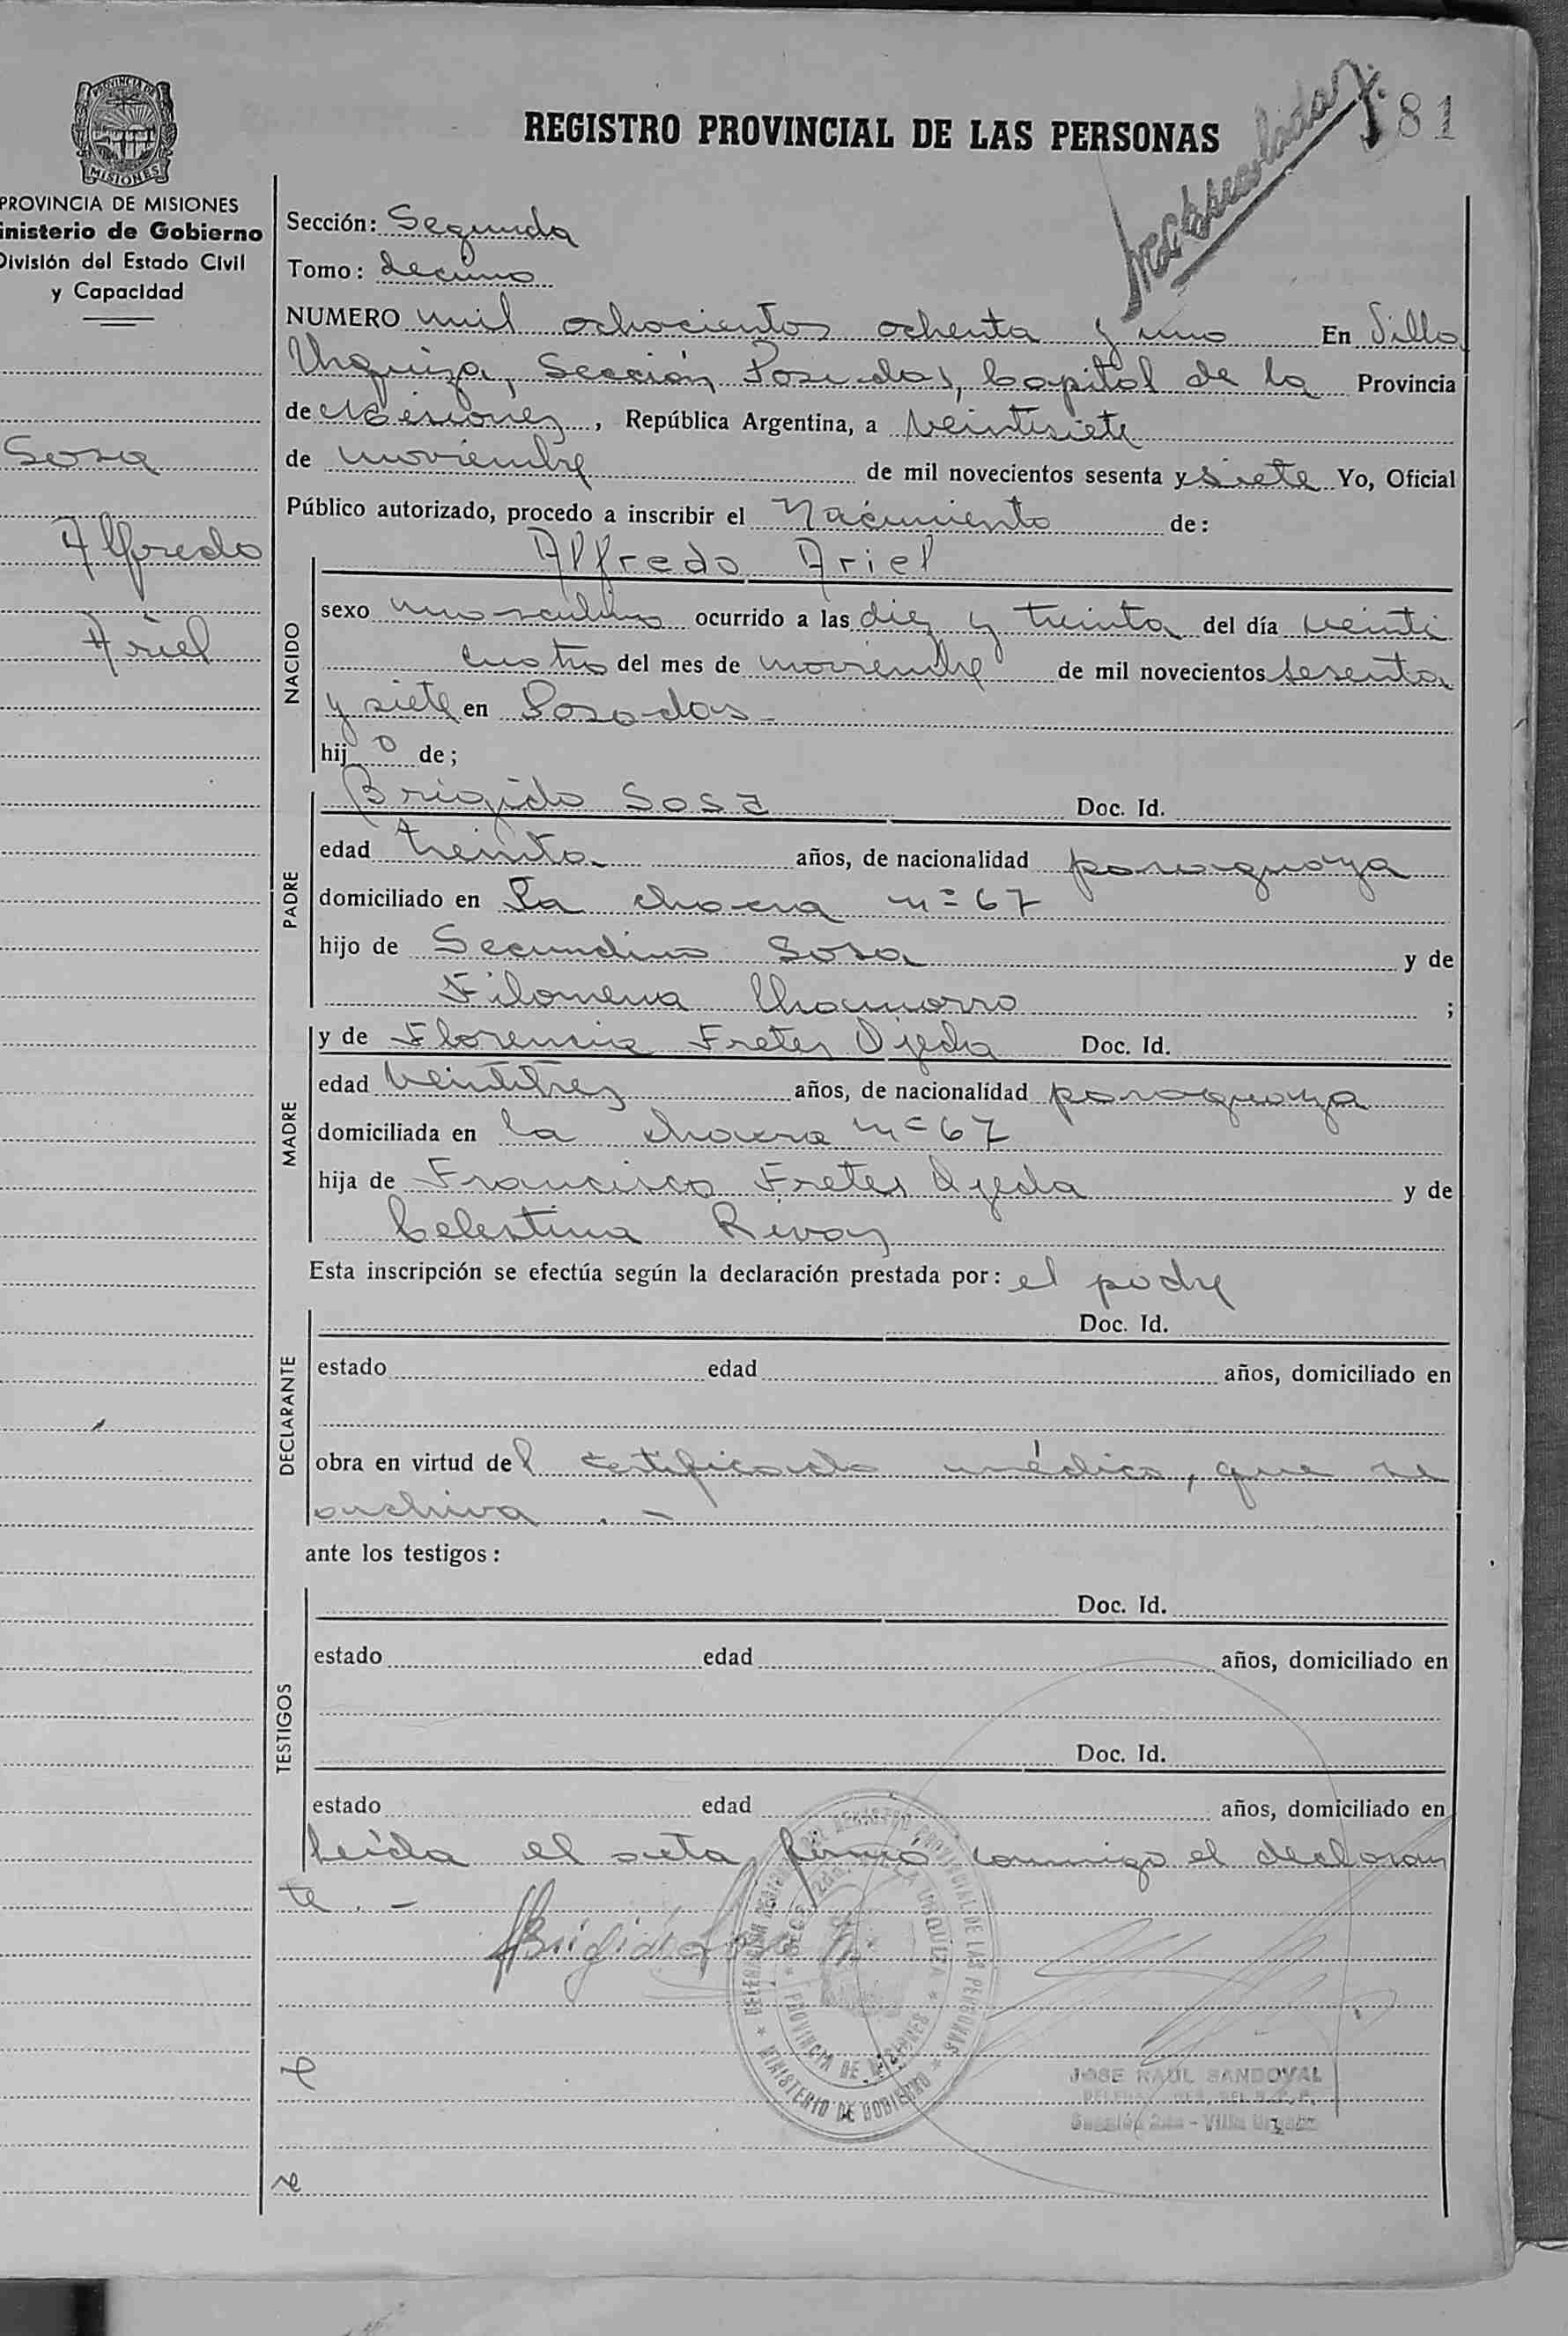 REGISTRO PROVINCIAL DE LAS PERSONAS
81
PROVINCIA DE
MISIONES
PROVINCIA DE MISIONES
inisterio de Gobierno
División del Estado Civil
y Capacidad
Sosa
Alfredo
Ariel
Sección: Segunda
Tomo: decimo
NUMERO mil ochocientos ochenta y uno En Villa
Urquiza, Sección Posadas, Capital de la Provincia
de Misiones, República Argentina, a veintisiete
de noviembre de mil novecientos sesenta y siete Yo, Oficial
Público autorizado, procedo a inscribir el Nacimiento de:
NACIDO
Alfredo Ariel
sexo masculino ocurrido a las diez y treinta del día veinti
cuatro del mes de noviembre de mil novecientos sesenta
y siete en Posadas.-
hijo de;
PADRE
Brigido Sosa Doc. Id.
edad treinta años, de nacionalidad paraguaya
domiciliado en la chacra nº 67
hijo de Secundino Sosa y de
Filomena Chamorro ;
MADRE
y de Florencia Fretes Ojeda Doc. Id.
edad veintitres años, de nacionalidad paraguaya
domiciliada en la chacra nº 67
hija de Francisco Fretes Ojeda y de
Celestina Rivas
Esta inscripción se efectúa según la declaración prestada por: el padre
DECLARANTE
Doc. Id.
estado edad años, domiciliado en
obra en virtud del certificado médico, que se
archiva .-
ante los testigos:
TESTIGOS
Doc. Id.
estado edad años, domiciliado en
Doc. Id.
estado edad años, domiciliado en
Leída el acta, firmó conmigo el declaran
te.-
Brigido Sosa
DELEGACION REGISTRO PROVINCIAL DE LAS PERSONAS
MINISTERIO DE GOBIERNO
SECC. 2da. VILLA URQUIZA
PROVINCIA DE MISIONES
JOSE RAUL SANDOVAL
Sección 2da - Villa Urquiza